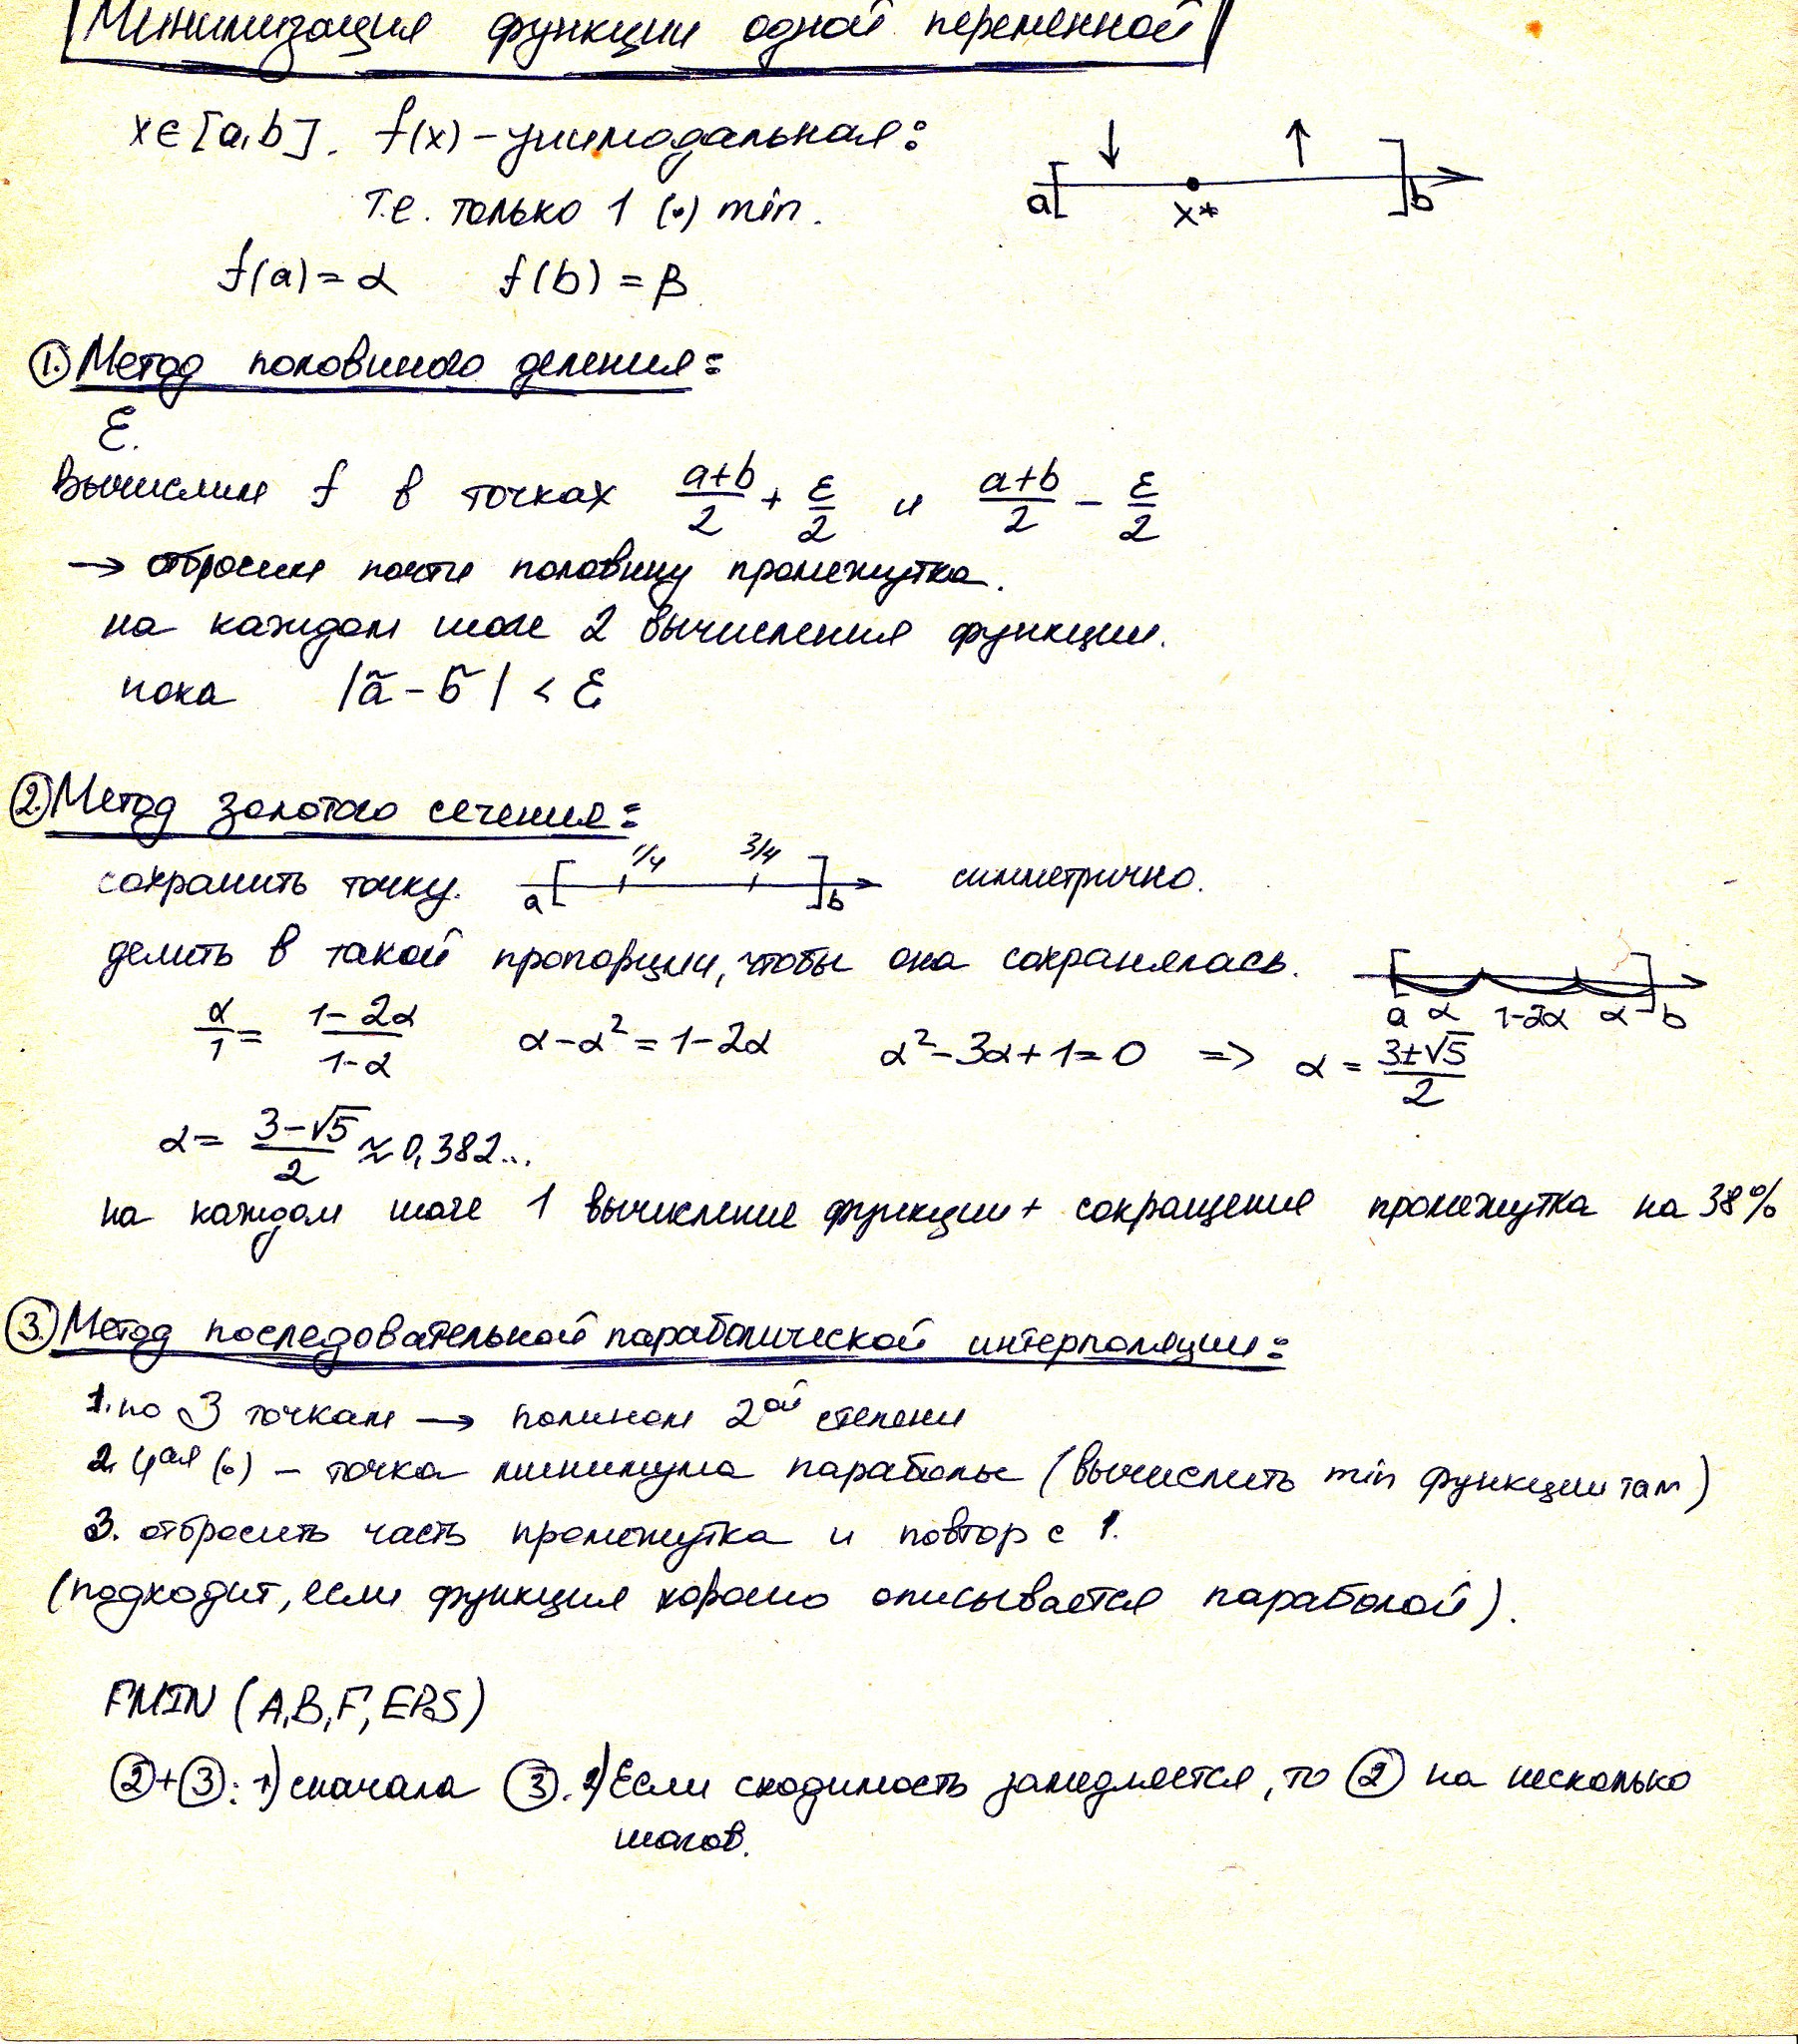 Минимизация функции одной переменной
x∈[a,b]. f(x) – унимодальная:
↓ ↑
a[ x* ]b
т.е. только 1 (•) min.
f(a) = α f(b) = β
1. Метод половиного деления:
ε.
Вычислим f в точках (a+b)/2 + ε/2 и (a+b)/2 – ε/2
→ отбросим почти половину промежутка.
на каждом шаге 2 вычисления функции.
пока |ã – b̃| < ε
2. Метод золотого сечения:
сохранить точку. a[ 1/4 3/4 ]b симметрично.
делить в такой пропорции, чтобы она сохранялась.
a α 1-2α α b
α/1 = (1-2α)/(1-α) α – α² = 1 – 2α α² – 3α + 1 = 0 => α = (3±√5)/2
α = (3–√5)/2 ≈ 0,382...
на каждом шаге 1 вычисление функции + сокращение промежутка на 38%
3. Метод последовательной параболической интерполяции:
1. по 3 точкам → полином 2ой степени
2. 4ая (•) – точка минимума параболы (вычислить min функции там)
3. отбросить часть промежутка и повтор с 1.
(подходит, если функция хорошо описывается параболой).
FMIN (A,B,F,EPS)
②+③: 1) сначала ③. 2) Если сходимость замедляется, то ② на несколько
шагов.